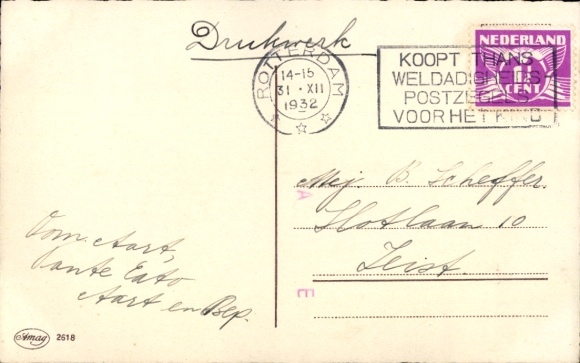 Drukwerk
ROTTERDAM
14-15
31 · XII
1932
KOOPT THANS
WELDADIGHEIDS
POSTZEGELS
VOOR HET KIND
NEDERLAND
CENT
Mej. B. Scheffer.
Slotlaan 10
Zeist.
A
E
Oom Aart,
Tante Eato
Aart en Bep.
Amag 2618